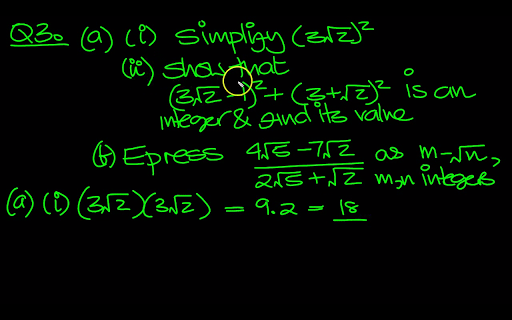 Q3. (a) (i) Simplify (3√2)²
(ii) show that
(3√2 - 1)² + (3+√2)² is an
integer & find its value
(b) Epress 4√5 - 7√2 / 2√5 + √2 as m-√n,
m,n integers
(a) (i) (3√2)(3√2) = 9.2 = 18